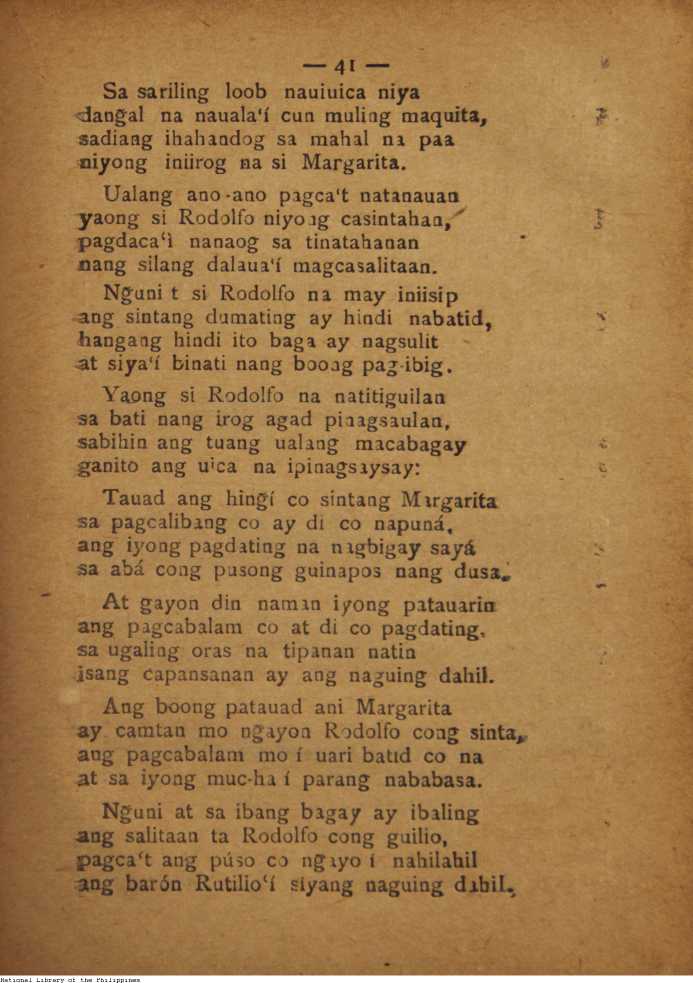 — 41 —
Sa sariling loob nauiuica niya
dangal na nauala‘í cun muling maquita,
sadiang ihahandog sa mahal na paa
niyong iniirog na si Margarita.
Ualang ano-ano pagca‘t natanauan
yaong si Rodolfo niyong casintahan,
pagdaca‘ì nanaog sa tinatahanan
nang silang dalaua‘í magcasalitaan.
Nguni t si Rodolfo na may iniisip
ang sintang dumating ay hindi nabatid,
hangang hindi ito baga ay nagsulit
at siya‘í binati nang boong pag-ibig.
Yaong si Rodolfo na natitiguilan
sa bati nang irog agad pinagsaulan,
sabihin ang tuang ualang macabagay
ganito ang uica na ipinagsaysay:
Tauad ang hingí co sintang Margarita
sa pagcalibang co ay di co napuná,
ang iyong pagdating na nagbigay sayá
sa abá cong pusong guinapos nang dusa.
At gayon din naman iyong patauarin
ang pagcabalam co at di co pagdating,
sa ugaling oras na tipanan natin
isang capansanan ay ang naguing dahil.
Ang boong patauad ani Margarita
ay camtan mo ngayon Rodolfo cong sinta,
ang pagcabalam mo í uari batid co na
at sa iyong muc-ha í parang nababasa.
Nguni at sa ibang bagay ay ibaling
ang salitaan ta Rodolfo cong guilio,
pagca‘t ang púso co ngayo í nahilahil
ang barón Rutilio‘í siyang naguing dahil.
National Library of the Philippines